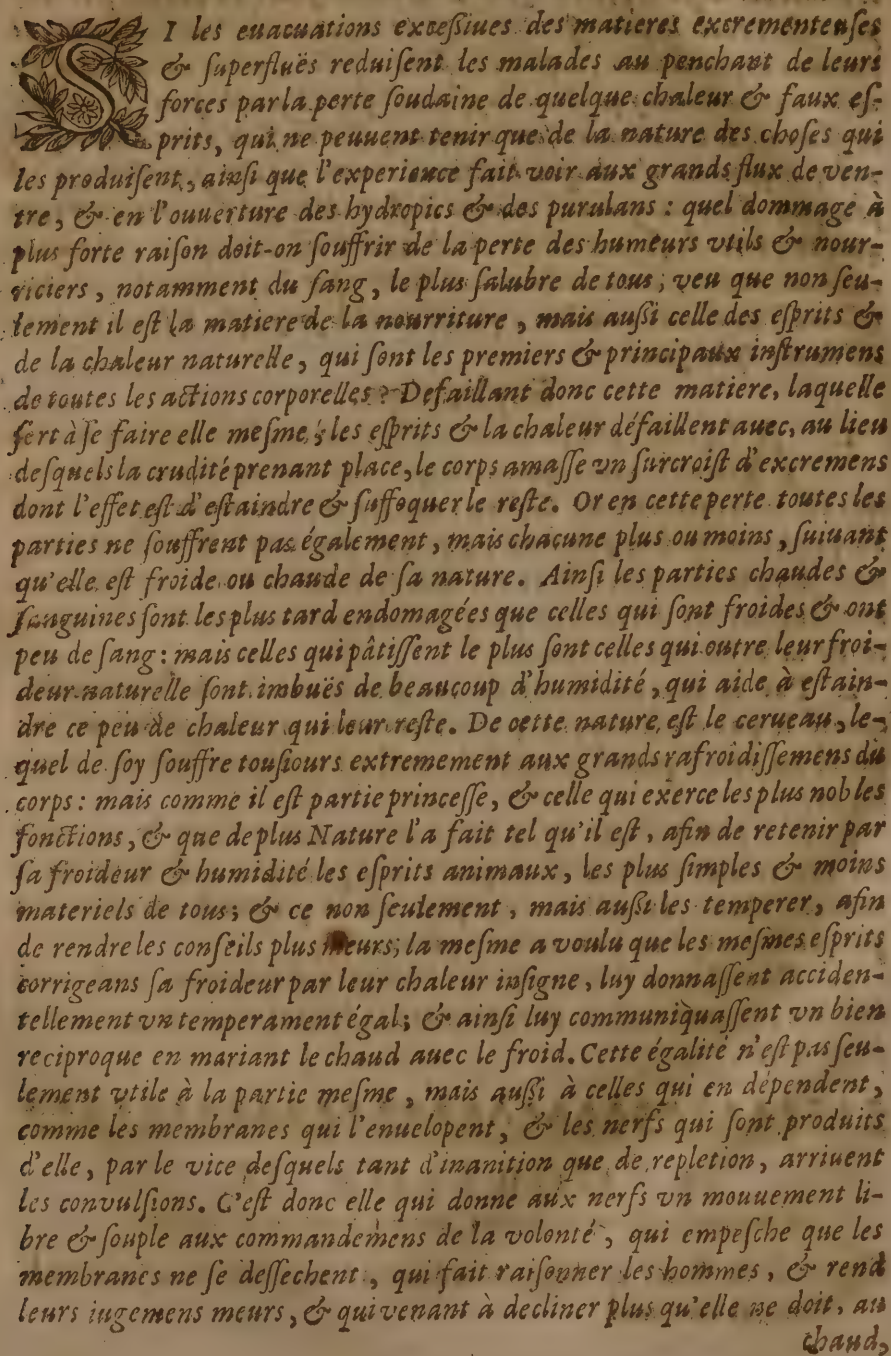 SI les euacuations exceſſiues des matieres excrementeuſes
& ſuperfluës reduiſent les malades au penchant de leurs
forces par la perte ſoudaine de quelque chaleur & faux eſ-
prits, qui ne peuuent tenir que de la nature des choſes qui
les produiſent, ainſi que l'experience fait voir aux grands flux de ven-
tre, & en l'ouuerture des hydropics & des purulans : quel dommage à
plus forte raiſon doit-on ſouffrir de la perte des humeurs vtils & nour-
riciers, notamment du ſang, le plus ſalubre de tous ; veu que non ſeu-
lement il eſt la matiere de la nourriture, mais auſſi celle des eſprits &
de la chaleur naturelle, qui ſont les premiers & principaux inſtrumens
de toutes les actions corporelles ? Defaillant donc cette matiere, laquelle
ſert à ſe faire elle meſme, les eſprits & la chaleur défaillent auec, au lieu
deſquels la crudité prenant place, le corps amaſſe vn ſurcroiſt d'excremens
dont l'effet eſt d'eſtaindre & ſuffoquer le reſte. Or en cette perte toutes les
parties ne ſouffrent pas également, mais chacune plus ou moins, ſuiuant
qu'elle eſt froide ou chaude de ſa nature. Ainſi les parties chaudes &
ſanguines ſont les plus tard endomagées que celles qui ſont froides & ont
peu de ſang : mais celles qui pâtiſſent le plus ſont celles qui outre leur froi-
deur naturelle ſont imbuës de beaucoup d'humidité, qui aide à eſtain-
dre ce peu de chaleur qui leur reſte. De cette nature eſt le cerueau, le-
quel de ſoy ſouffre touſiours extremement aux grands rafroidiſſemens du
corps : mais comme il eſt partie princeſſe, & celle qui exerce les plus nobles
fonctions, & que de plus Nature l'a fait tel qu'il eſt, afin de retenir par
ſa froideur & humidité les eſprits animaux, les plus ſimples & moins
materiels de tous ; & ce non ſeulement, mais auſſi les temperer, afin
de rendre les conſeils plus meurs; la meſme a voulu que les meſmes eſprits
corrigeans ſa froideur par leur chaleur inſigne, luy donnaſſent acciden-
tellement vn temperament égal ; & ainſi luy communiquaſſent vn bien
reciproque en mariant le chaud auec le froid. Cette égalité n'eſt pas ſeu-
lement vtile à la partie meſme, mais auſſi à celles qui en dépendent,
comme les membranes qui l'enuelopent, & les nerfs qui ſont produits
d'elle, par le vice deſquels tant d'inanition que de repletion, arriuent
les convulſions. C'eſt donc elle qui donne aux nerfs vn mouuement li-
bre & ſouple aux commandemens de la volonté, qui empeſche que les
membranes ne ſe deſſechent, qui fait raiſonner les hommes, & rend
leurs iugemens meurs, & qui venant à decliner plus qu'elle ne doit, au
chaud,